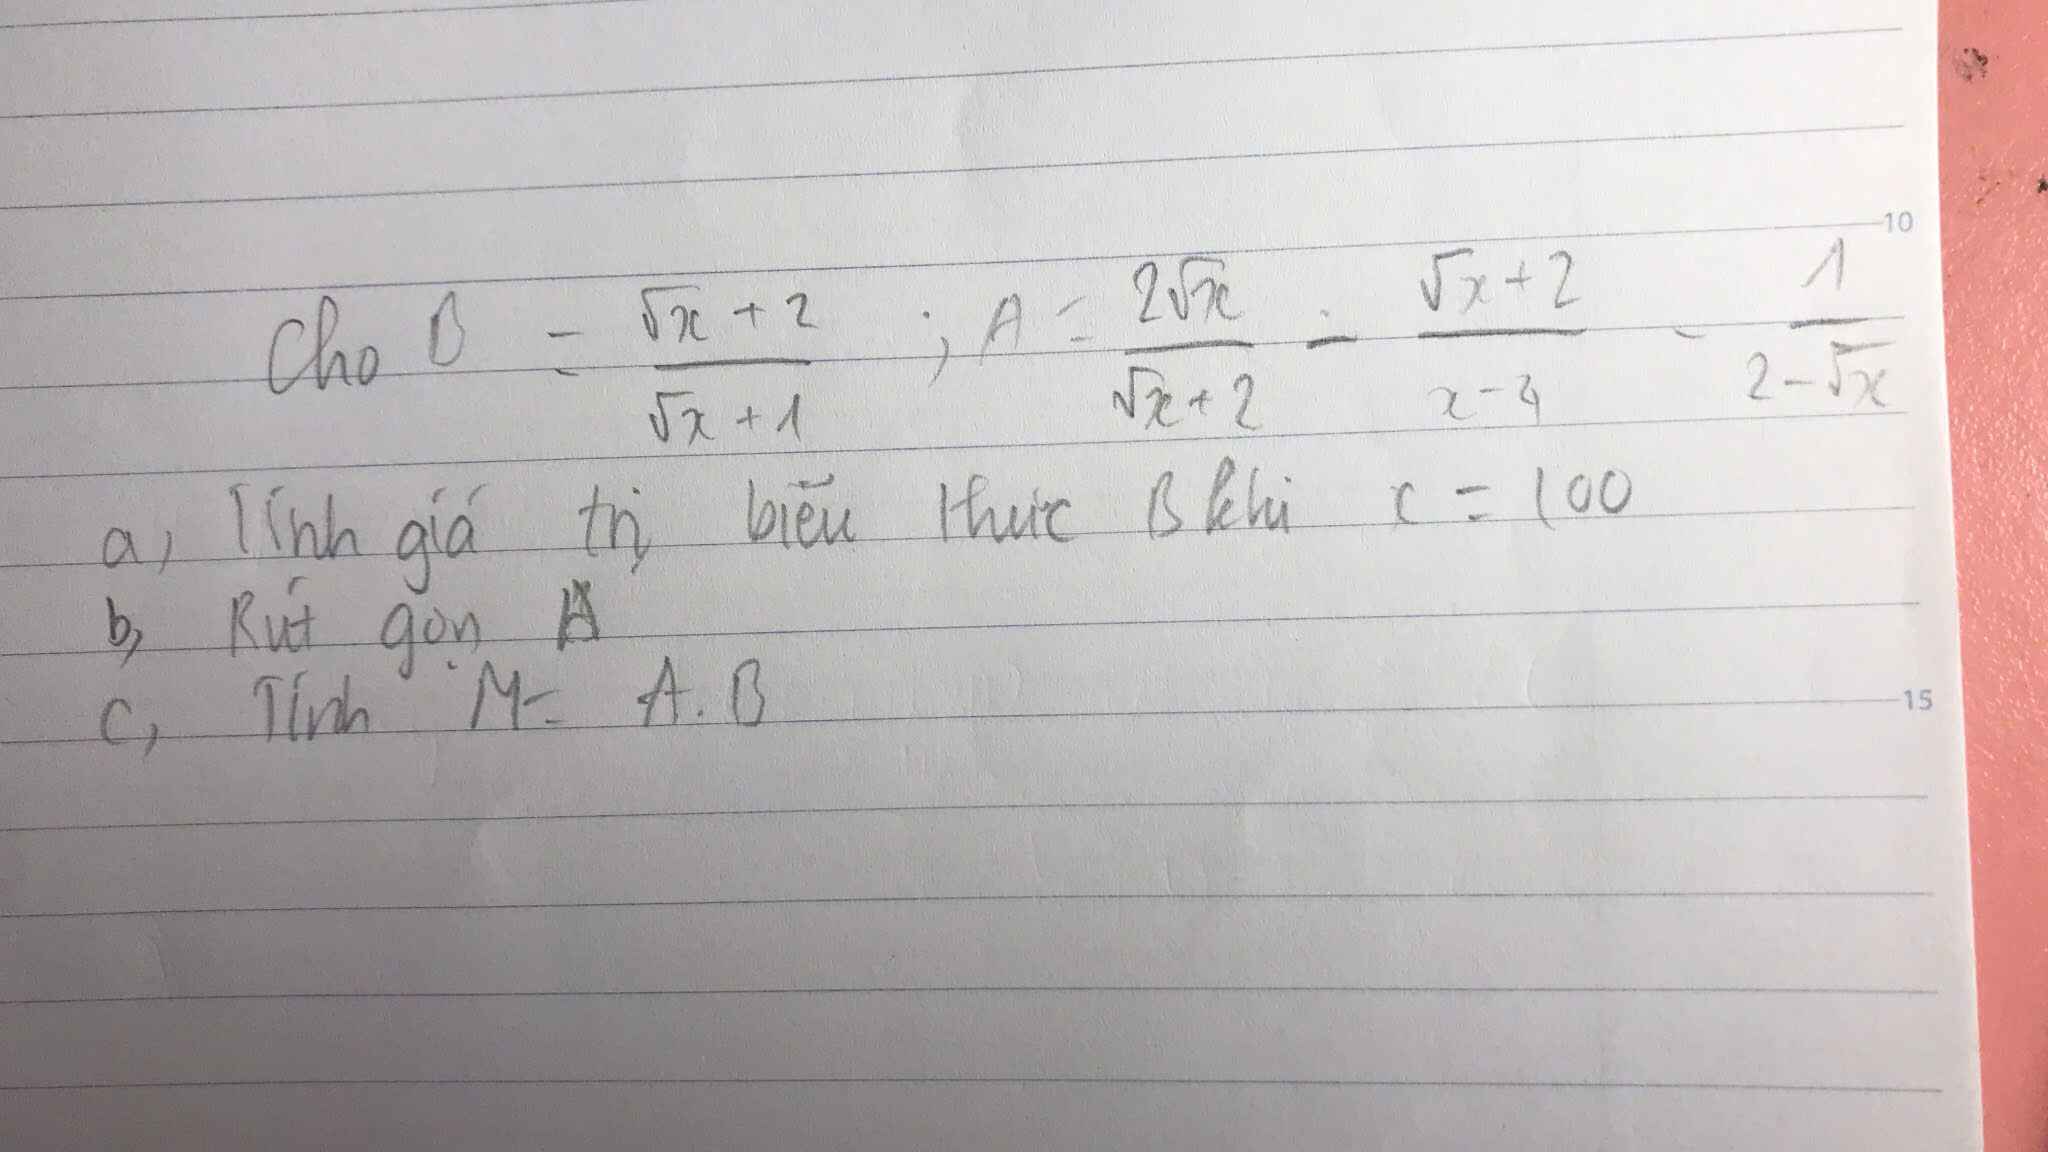 10
Cho B = (√x + 2)/(√x + 1) ; A = 2√x/(√x + 2) - (√x + 2)/(x - 4) - 1/(2 - √x)
a, Tính giá trị biểu thức B khi x = 100
b, Rút gọn A
c, Tính M = A.B
15